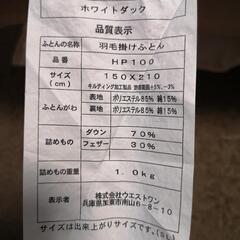 ホワイトダック
品質表示
ふとんの名称 羽毛掛けふとん
HP100
サイズ(cm) 150X210
キルティング加工製品 許容範囲+5%、-3%
ふとんがわ 表地 ポリエステル85% 綿15%
裏地 ポリエステル85% 綿15%
詰めもの ダウン 70%
フェザー 30%
詰めもの重量 1.0kg
表示者 株式会社ウエストワン
兵庫県加東市南山6-8-10
サイズは出来上がりサイズです。(SL)